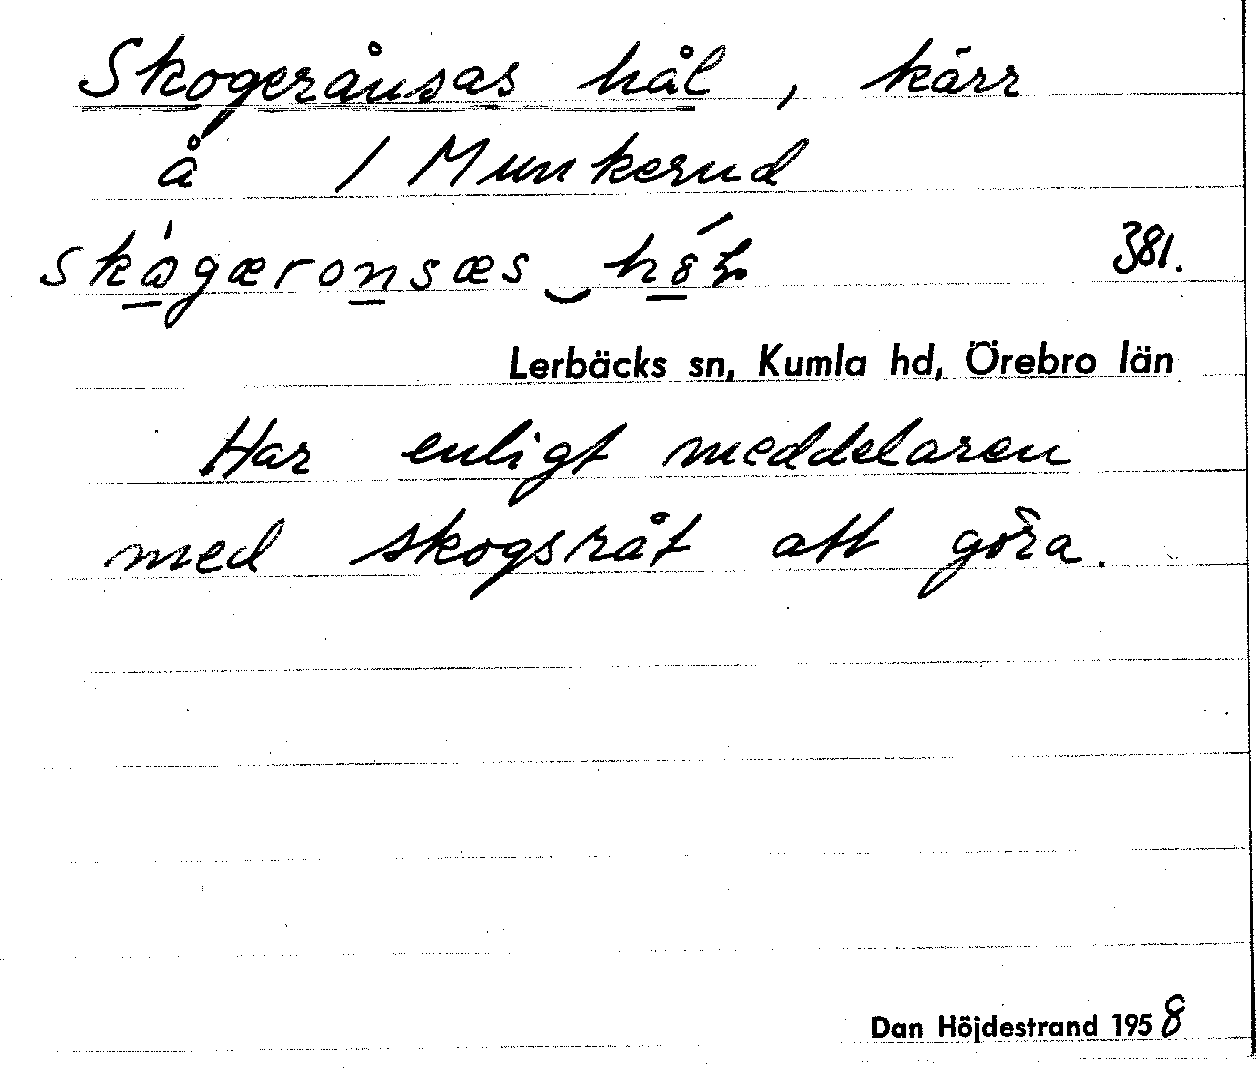 Skogerånsas hål, kärr
å / Munkerud
381.
Lerbäcks sn, Kumla hd, Örebro län
Har enligt meddelaren
med skogsråt att göra.
Dan Höjdestrand 1958